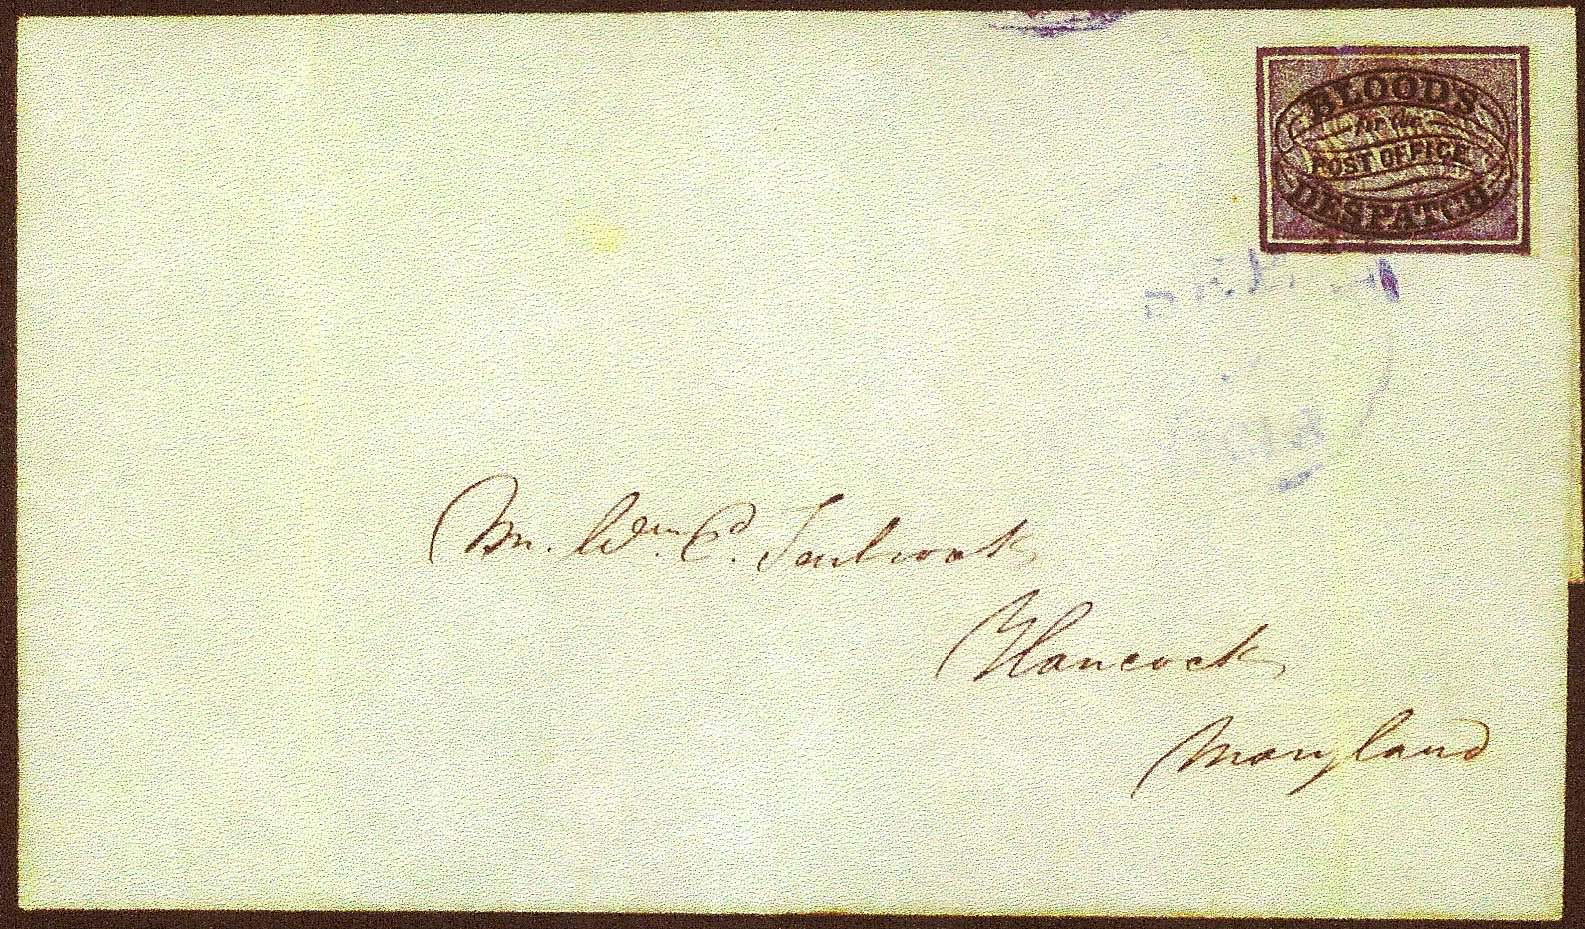 BLOOD'S
for the
POST OFFICE
DESPATCH
Mr. Wm. C.
Hancock
Maryland